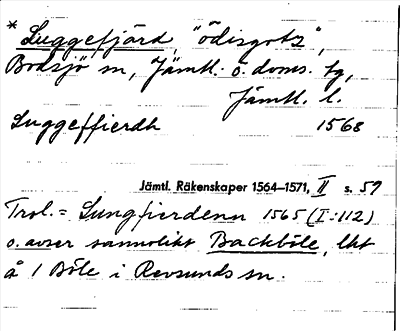 * Luggefjärd, "ödisgotz",
Bodsjö sn, Jämtl. ö. doms. tg,
Jämtl. l.
Luggeffierdh 1568
Jämtl. Räkenskaper 1564–1571, II s. 59
Trol. = Lungfierdenn 1565 (I:112)
o. avser sannolikt Backböle, lkt
å 1 Böle i Revsunds sn.